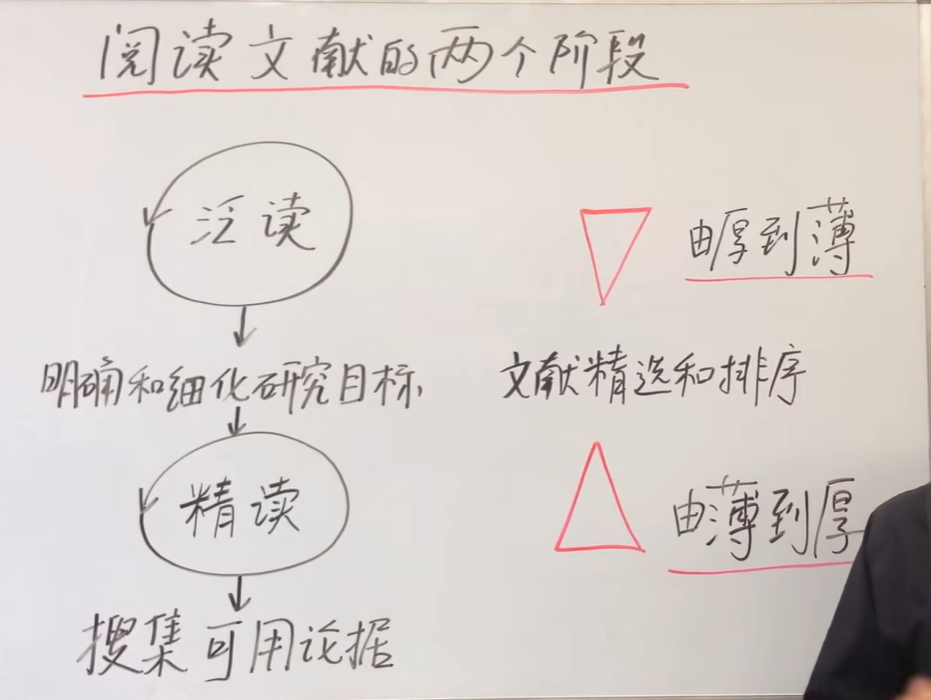 阅读文献的两个阶段
泛读
由厚到薄
明确和细化研究目标
文献精选和排序
精读
由薄到厚
搜集可用论据